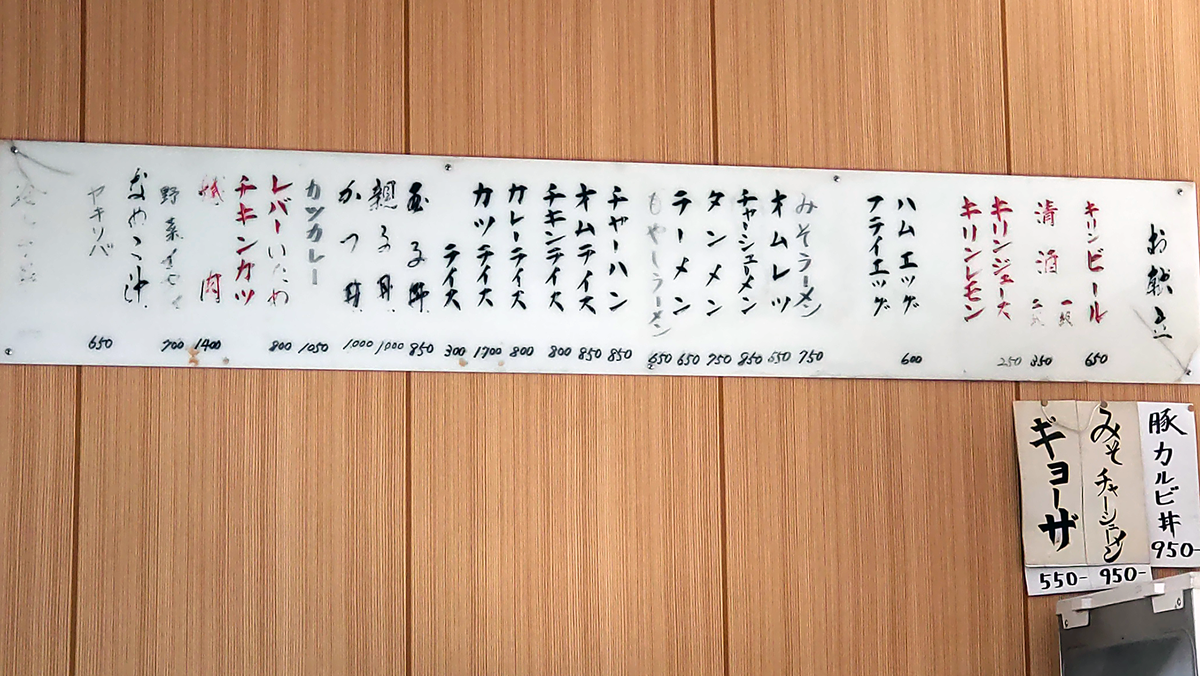 お献立
キリンビール 650
清酒 一級 350
二級
キリンジュース 250
キリンレモン
ハムエッグ 600
フライエッグ
みそラーメン 750
オムレツ 650
チャーシューメン 850
タンメン 750
ラーメン 650
もやしラーメン 650
チャーハン 850
オムライス 850
チキンライス 800
カレーライス 800
カツライス 1700
ライス 300
玉子丼 850
親子丼 1000
かつ丼 1000
カツカレー 1050
レバーいため 800
チキンカツ
焼肉 1400
野菜イタメ 700
なめこ汁
ヤキソバ 650
豚カルビ丼 950-
みそチャーシューメン 950-
ギョーザ 550-